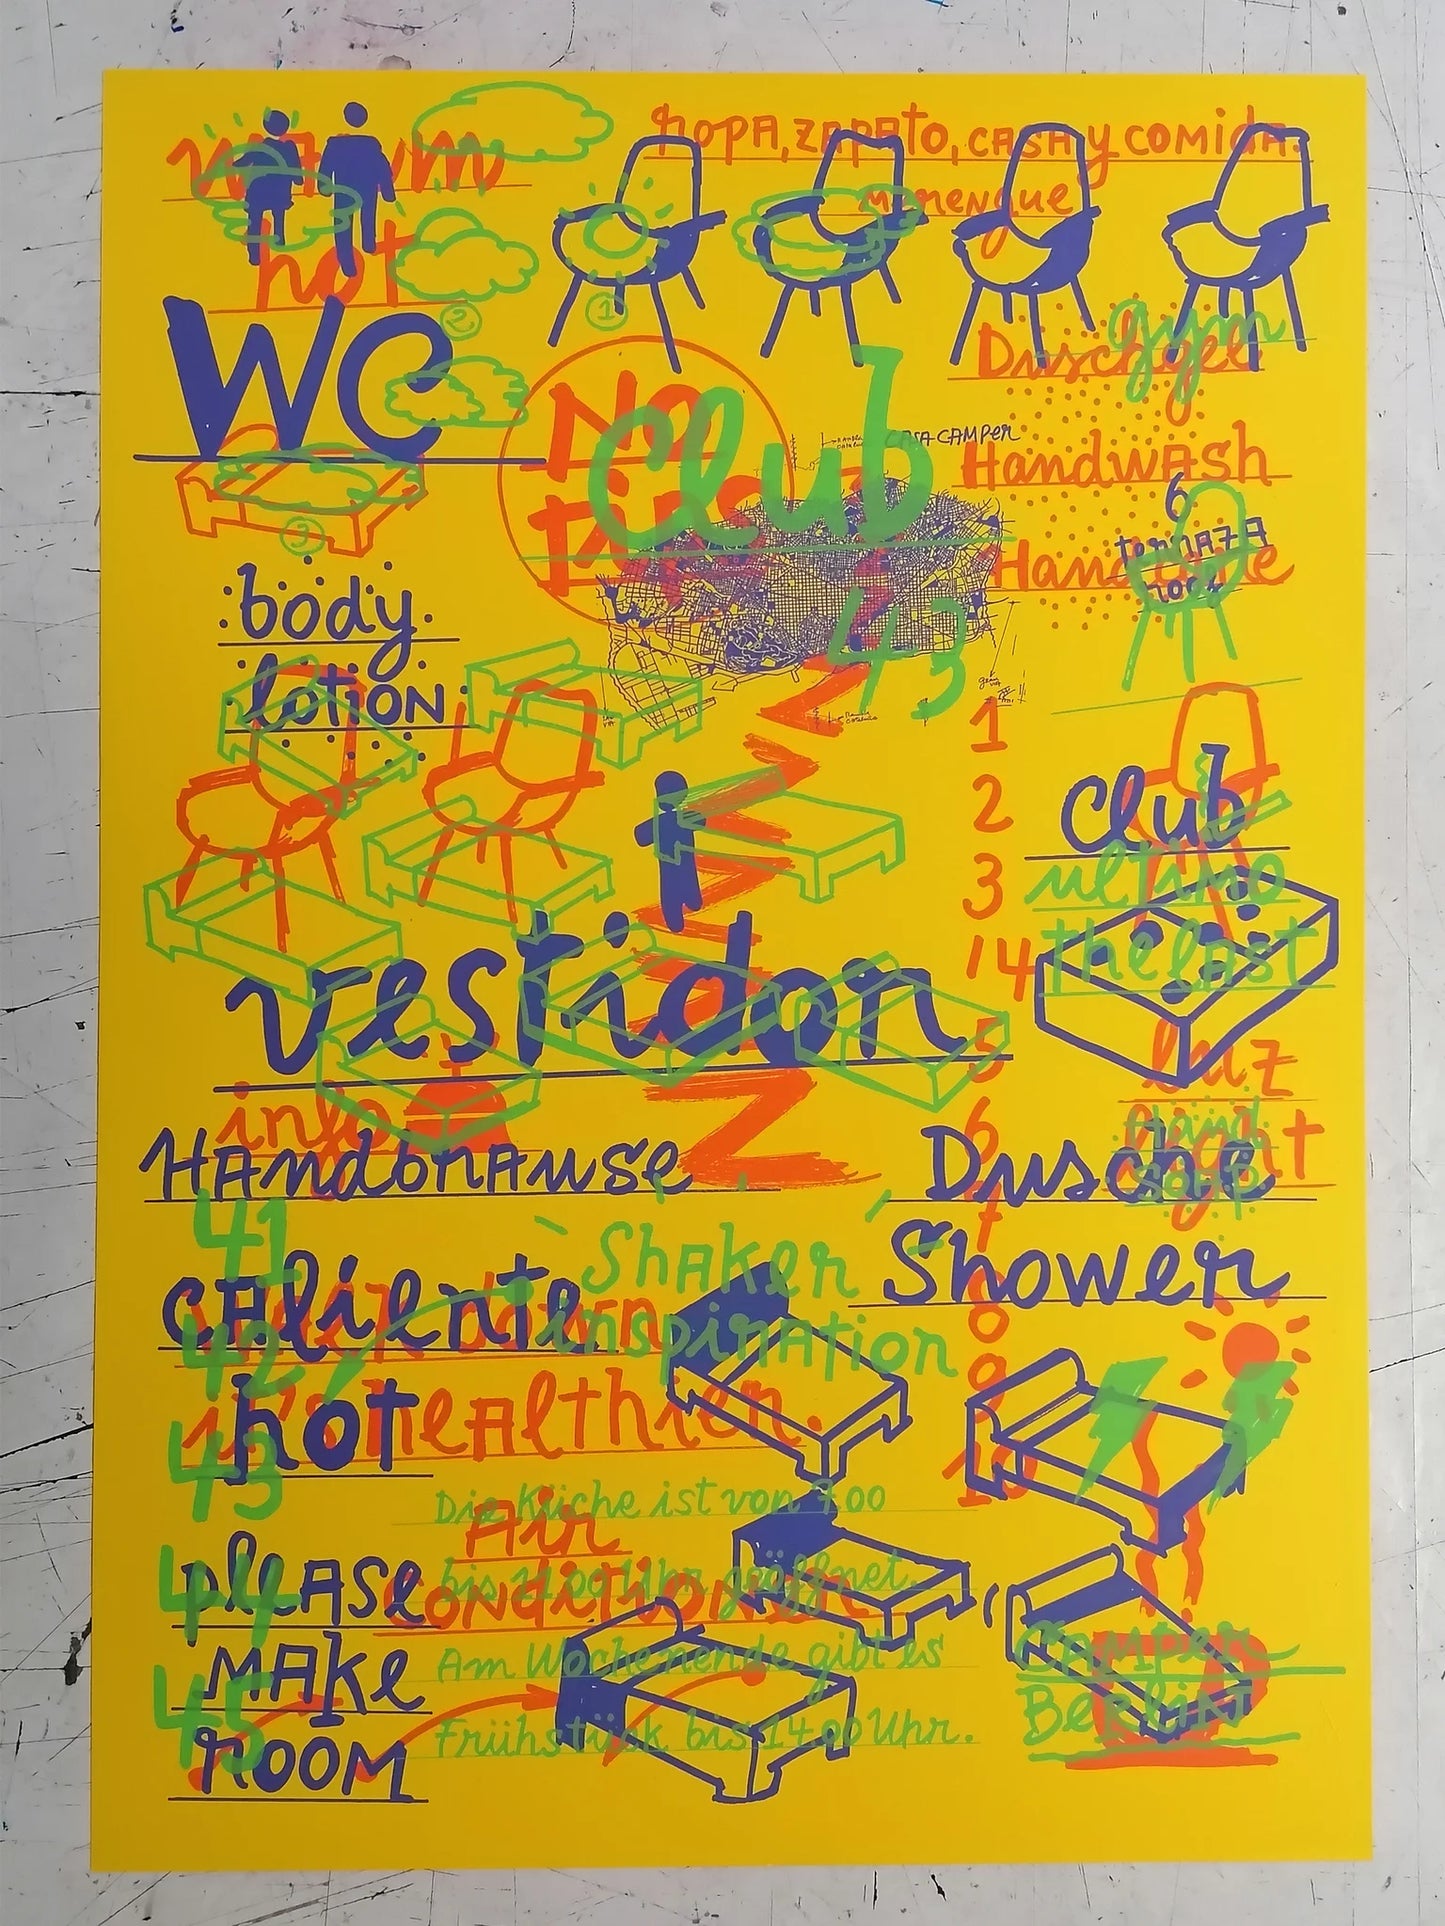 warm
hot
Ropa, zapato, casa y comida.
merengue
WC
2
1
3
gym
Duschgel
NO
Club
CASA CAMPER
Handwash
6
terraza
body
lotion
43
1
2
3
14
5
6
7
8
9
10
Club
ultimo
the last
vestidor
info
luz
light
Hand
soap
Handbrause
Dusche
Shower
41
42
43
44
45
Shaker
inspiration
caliente
hot
it's healthier.
Die Küche ist von 7.00
bis 11.00 Uhr geöffnet.
Am Wochenende gibt es
Frühstück bis 14.00 Uhr.
Air
conditioner
please
make
room
Camper
Berlin